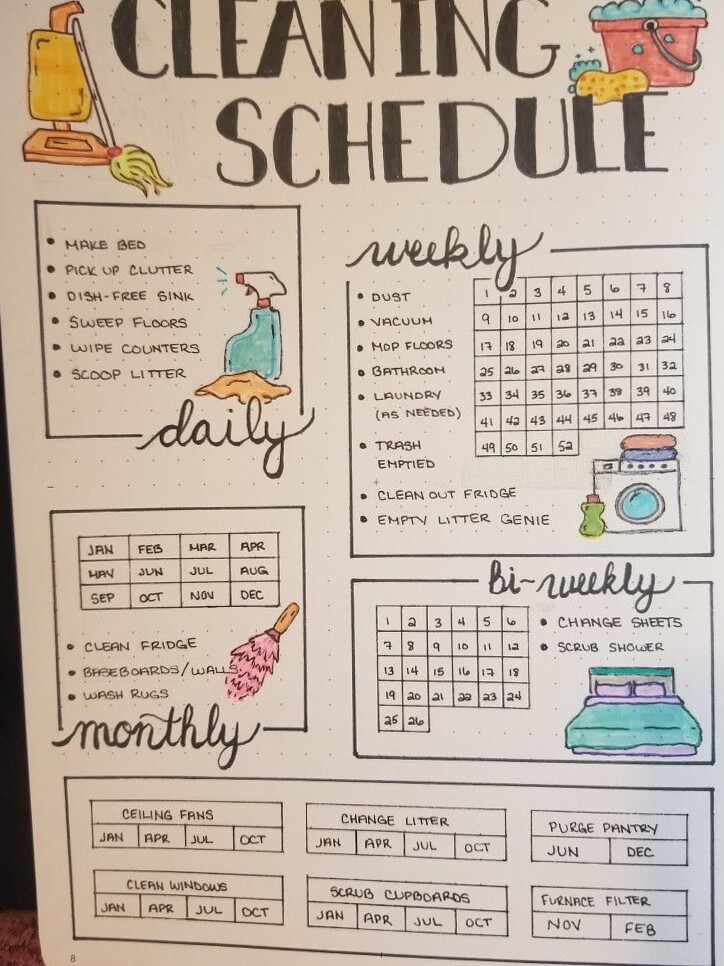 CLEANING
SCHEDULE
• MAKE BED
• PICK UP CLUTTER
• DISH-FREE SINK
• SWEEP FLOORS
• WIPE COUNTERS
• SCOOP LITTER
daily
weekly
• DUST
• VACUUM
• MOP FLOORS
• BATHROOM
• LAUNDRY
(AS NEEDED)
• TRASH
EMPTIED
• CLEAN OUT FRIDGE
• EMPTY LITTER GENIE
1 2 3 4 5 6 7 8
9 10 11 12 13 14 15 16
17 18 19 20 21 22 23 24
25 26 27 28 29 30 31 32
33 34 35 36 37 38 39 40
41 42 43 44 45 46 47 48
49 50 51 52
JAN FEB MAR APR
MAY JUN JUL AUG
SEP OCT NOV DEC
• CLEAN FRIDGE
• BASEBOARDS/WALLS
• WASH RUGS
monthly
bi-weekly
1 2 3 4 5 6
7 8 9 10 11 12
13 14 15 16 17 18
19 20 21 22 23 24
25 26
• CHANGE SHEETS
• SCRUB SHOWER
CEILING FANS
JAN APR JUL OCT
CHANGE LITTER
JAN APR JUL OCT
PURGE PANTRY
JUN DEC
CLEAN WINDOWS
JAN APR JUL OCT
SCRUB CUPBOARDS
JAN APR JUL OCT
FURNACE FILTER
NOV FEB
8